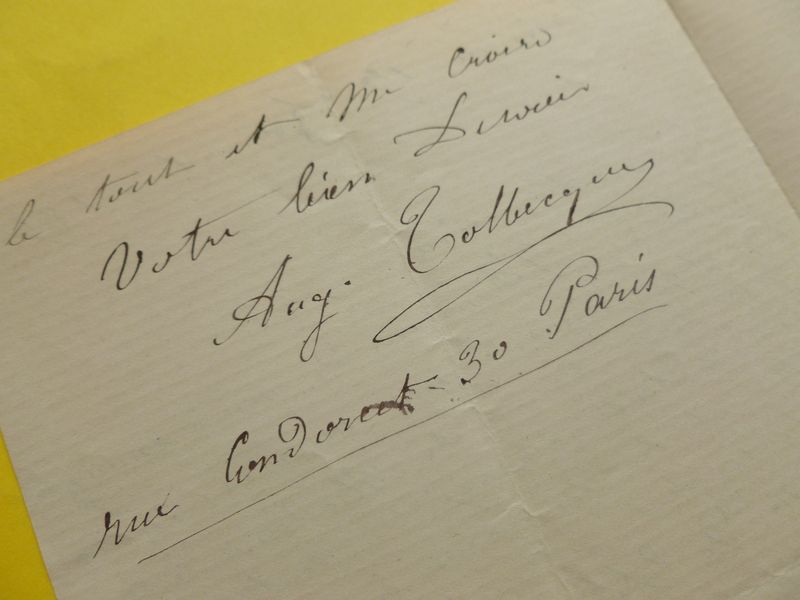 le tout et me croire
Votre bien Dévoué
Aug. Tolbecque
rue Condorcet - 30 Paris